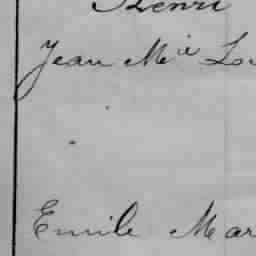 Henri
Jean Mie Lou
Emile Mar